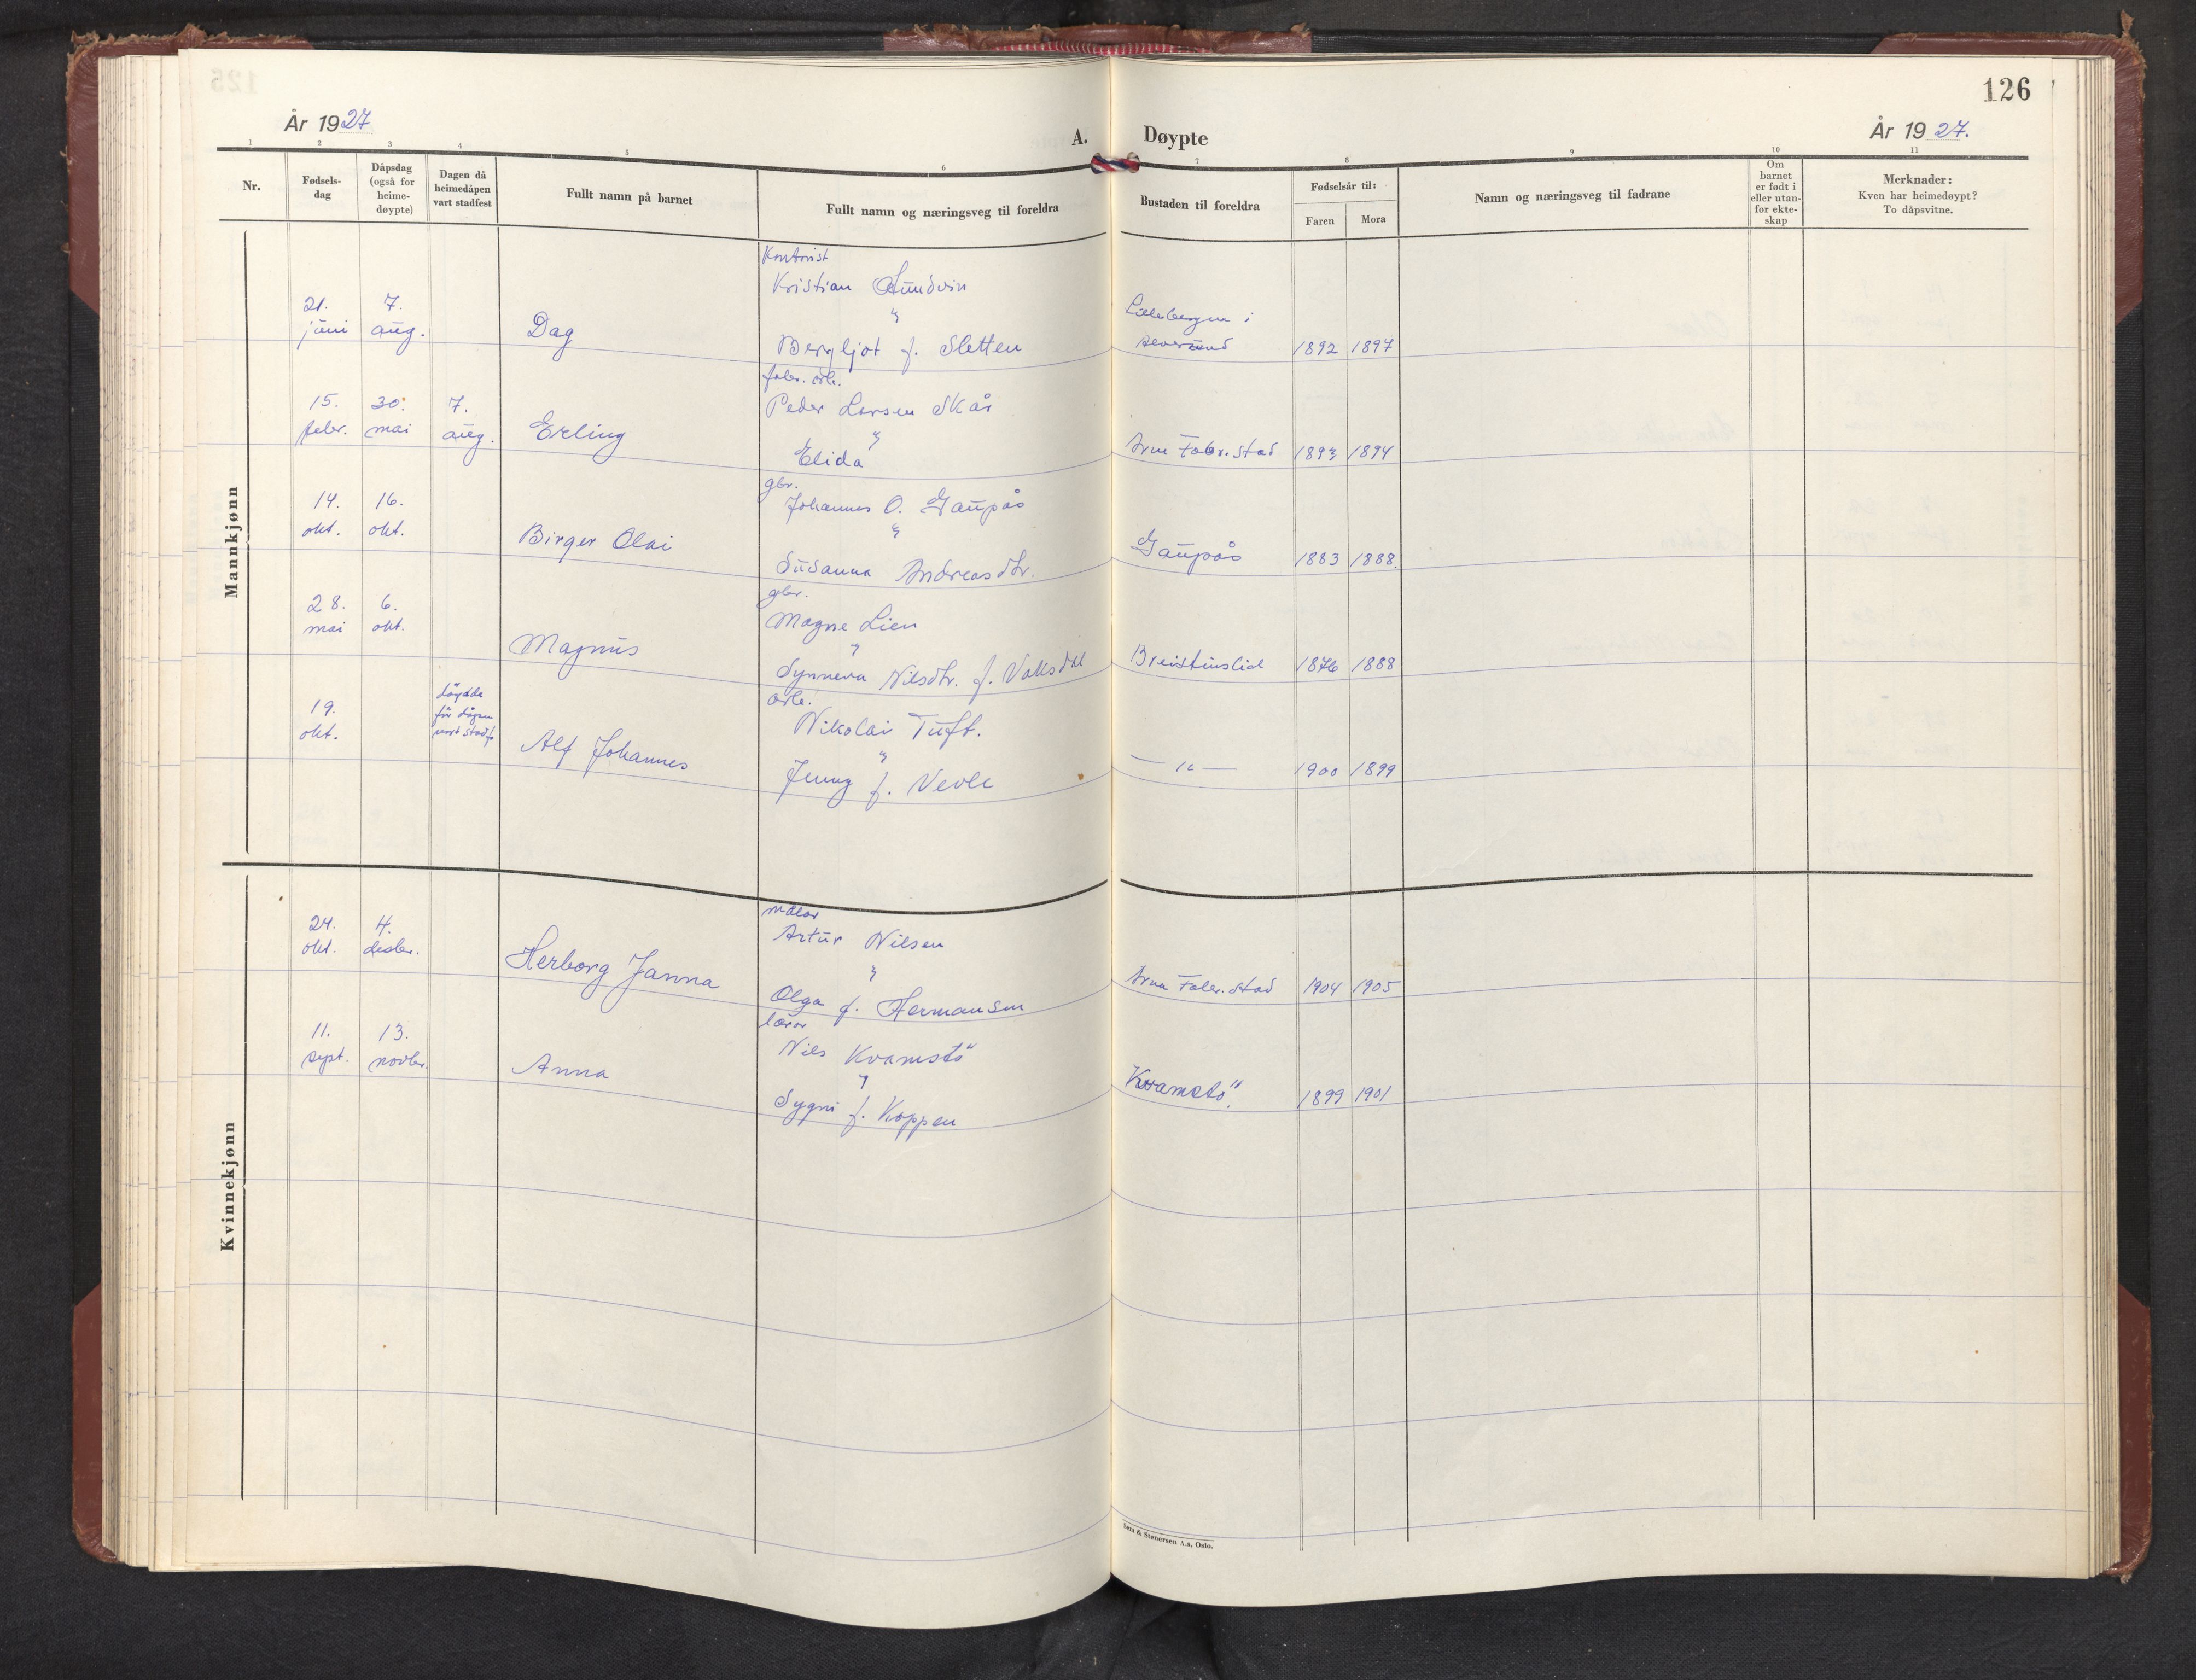 126
År 1927
A. Døypte
År 1927.
1 2 3 4 5 6 7 8 9 10 11
Nr.
Fødsels-
dag
Dåpsdag
(også for
heime-
døypte)
Dagen då
heimedåpen
vart stadfest
Fullt namn på barnet
Fullt namn og næringsveg til foreldra
Bustaden til foreldra
Fødselsår til:
Faren Mora
Namn og næringsveg til fadrane
Om
barnet
er født i
eller utan-
for ekte-
skap
Merknader:
Kven har heimedøypt?
To dåpsvitne.
Mannkjønn
Kontorist
Kristian
21. juni
7. aug.
Dag
Bergljot f. Sletten
1892 1897
fabr. arb.
Peder Larsen Skår
15. febr.
30. mai
7. aug.
Erling
Elida
Arna Fabr. stad
1893 1894
gbr.
Johannes O. Gaupås
14. okt.
16. okt.
Birger Olai
Susanna Andreasdtr.
Gaupås
1883 1888.
gbr.
Magne Lien
28. mai
6. okt.
Magnus
Synneva Nilsdtr. f. Vaksdal
Breisteinslid
1876 1888
arb.
Nikolai Tuft.
19. okt.
døydde
før dåpen
vart stadf.
Alf Johannes
Jenny f. Vevle
— " —
1900 1899
Kvinnekjønn
målar
Artur Nilsen
24. okt.
4. desbr.
Herborg Janna
Olga f. Hermansen
Arna Fabr. stad
1904 1905
lærar
Nils Kvamstö
11. sept.
13. novbr.
Anna
Sygni f. Koppen
Kvamstö.
1899 1901
Sem & Stenersen A.s, Oslo.